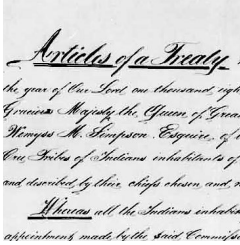 Articles of a Treaty
the year of Our Lord one thousand, eigh
Gracious Majesty the Queen of Grea
Wemyss M. Simpson, Esquire, of t
Cree Tribes of Indians inhabitants of
and described by their chiefs chosen and n
Whereas all the Indians inhabit
appointment made by the said Commiss